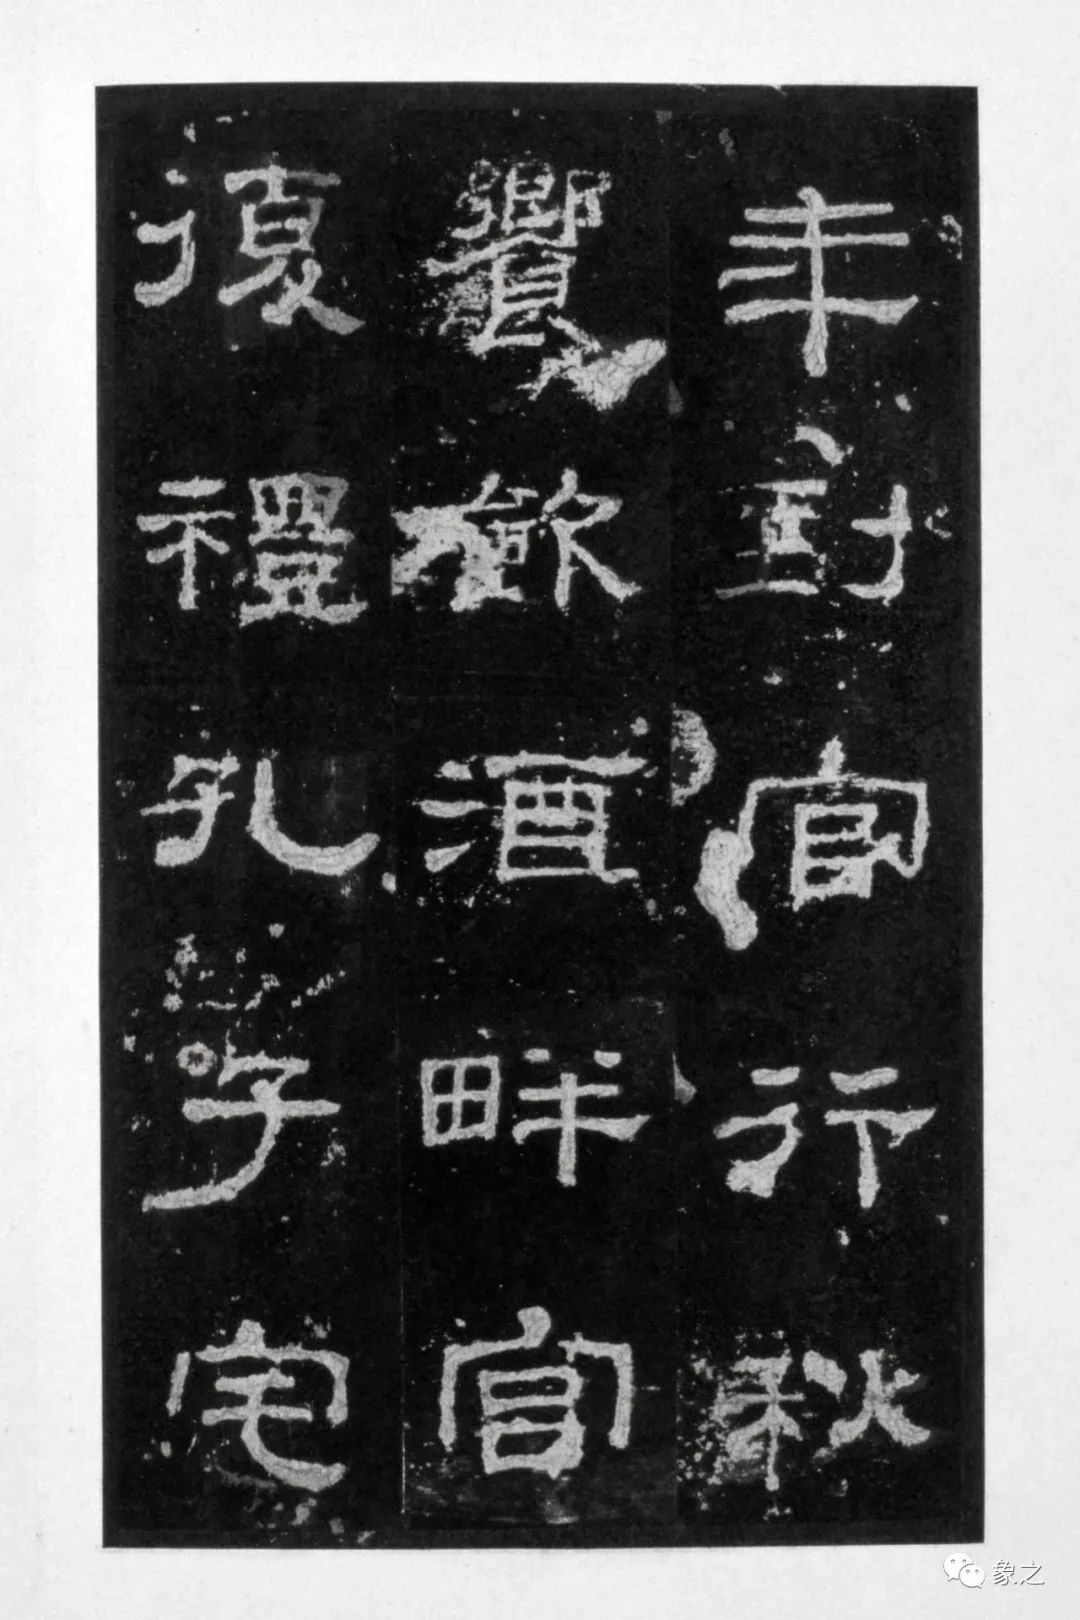 年到官行秋
饗飲酒畔宮
復禮孔子宅
象之